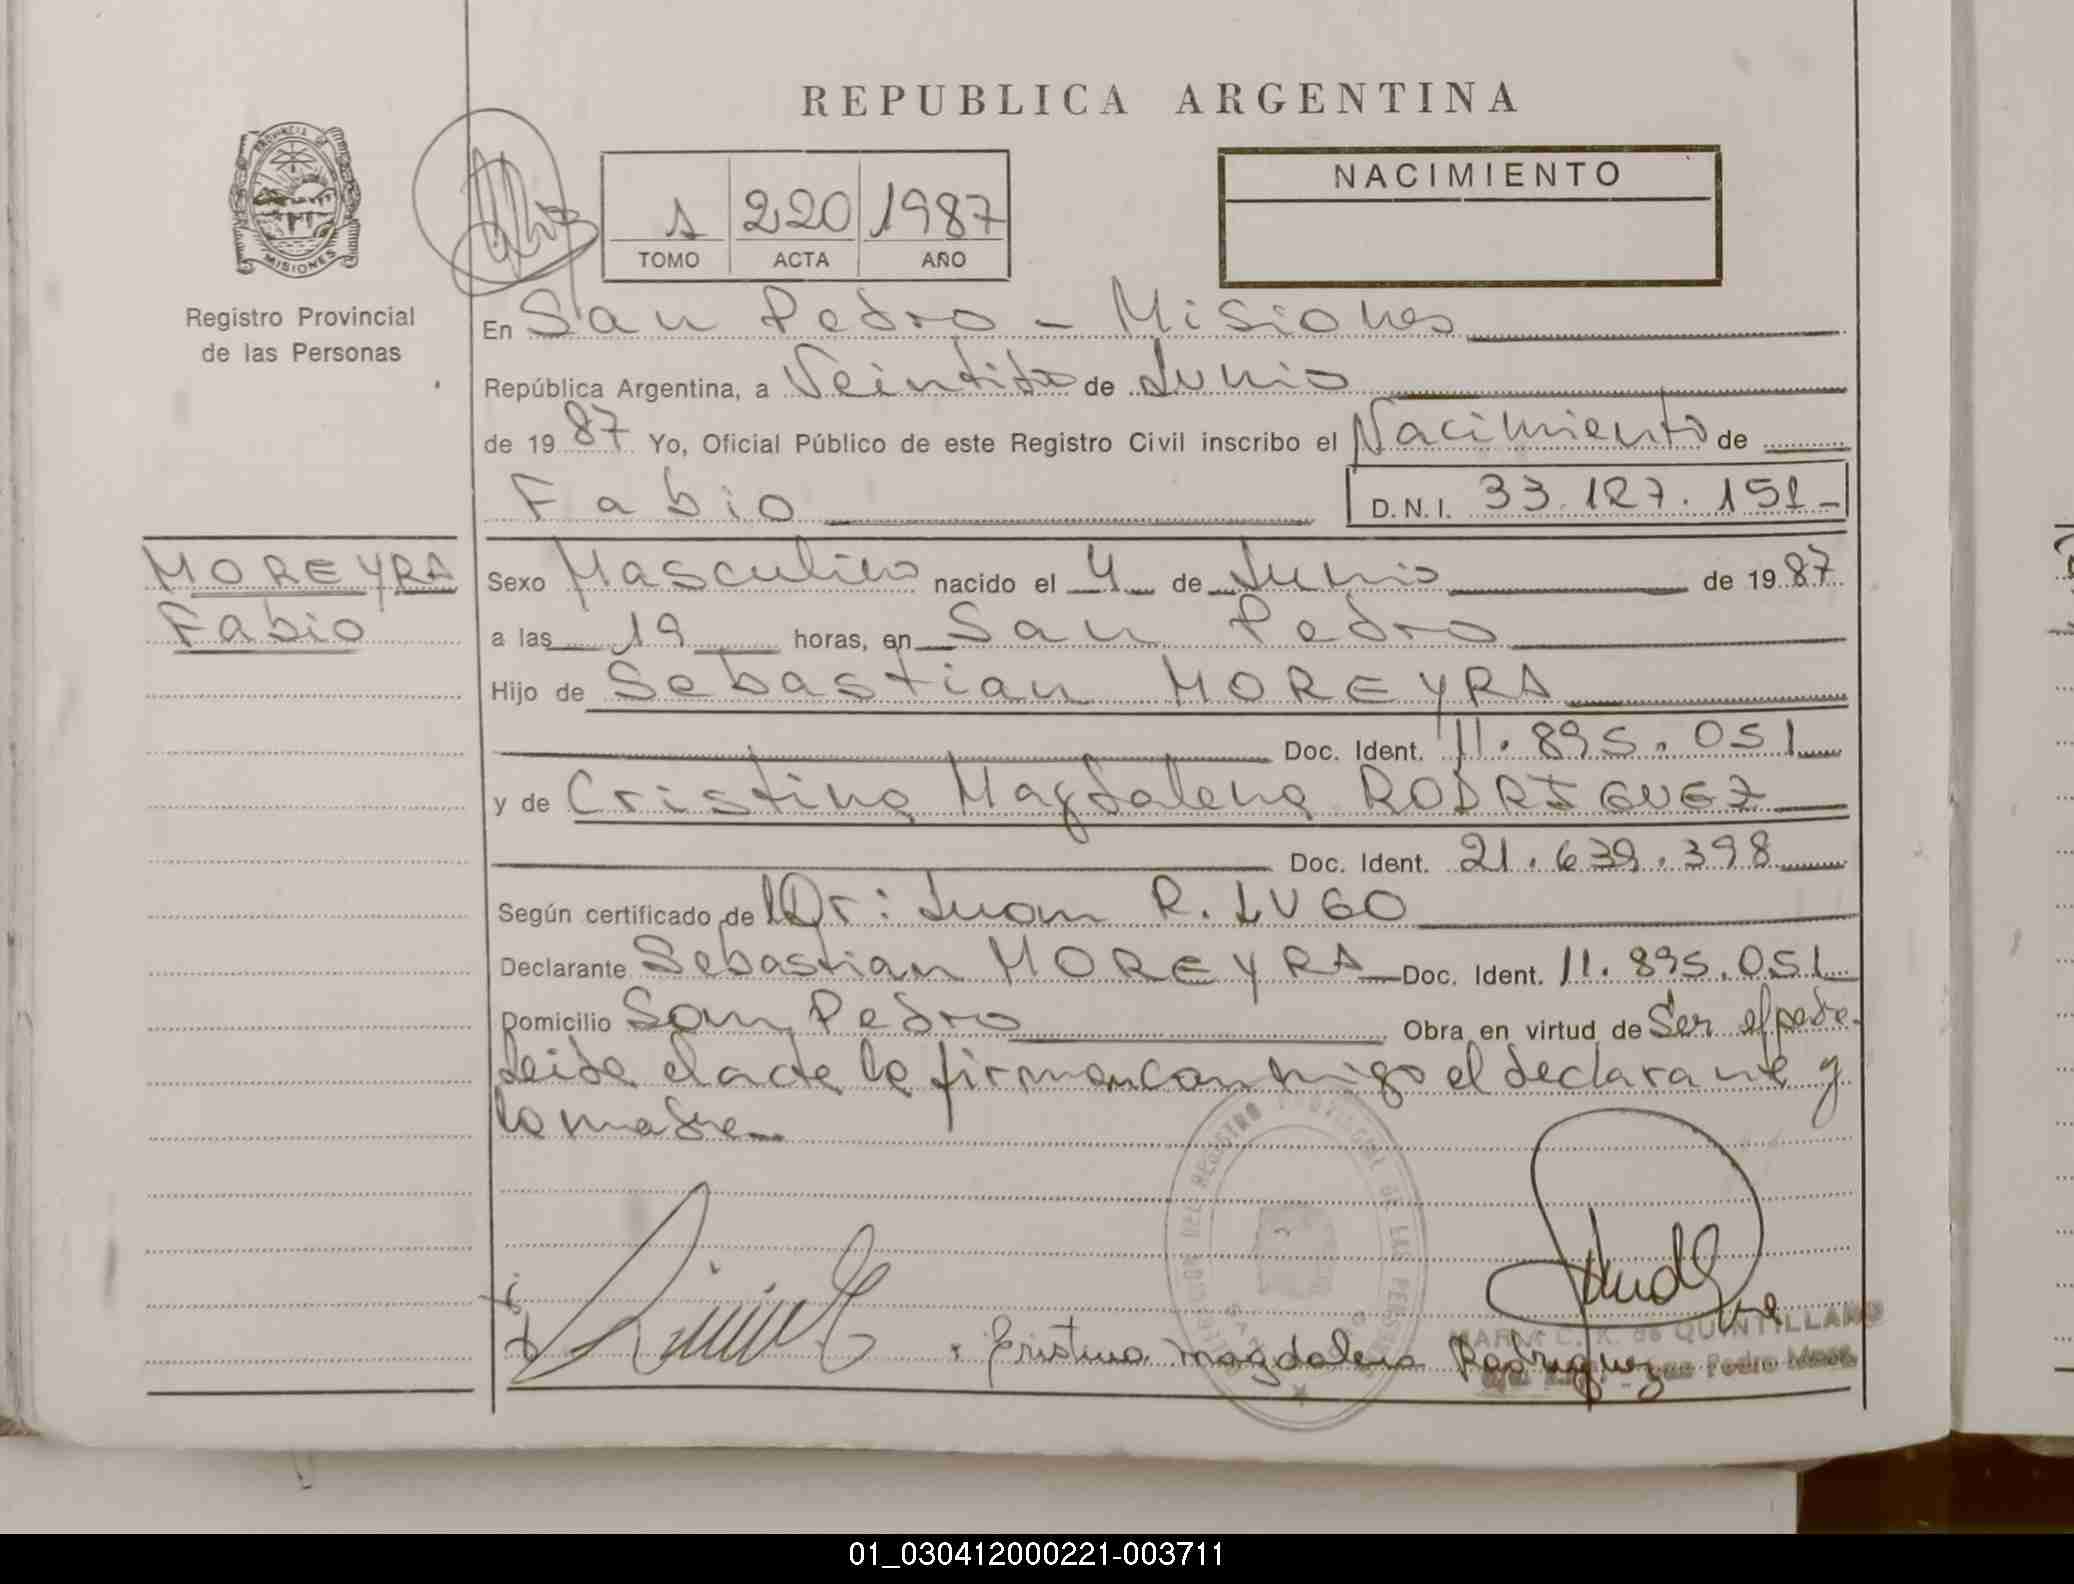 REPUBLICA ARGENTINA
PROVINCIA DE
MISIONES
Registro Provincial
de las Personas
1 220 1987
TOMO ACTA AÑO
NACIMIENTO
En San Pedro - Misiones
República Argentina, a Veintitres de Junio
de 1987 Yo, Oficial Público de este Registro Civil inscribo el Nacimiento de
Fabio D.N.I. 33.127.151-
MOREYRA
Fabio
Sexo Masculino nacido el 4 de Junio de 1987
a las 19 horas, en San Pedro
Hijo de Sebastian MOREYRA
Doc. Ident. 11.895.051
y de Cristina Magdalena RODRIGUEZ
Doc. Ident. 21.639.398
Según certificado de Dr: Juan R. LUGO
Declarante Sebastian MOREYRA Doc. Ident. 11.895.051
Domicilio San Pedro Obra en virtud de Ser el padre-
Leida el acta la firman conmigo el declarante y
la madre
DEL REGISTRO PROVINCIAL DE LAS PERSONAS
Cristina magdalena Rodriguez
MARIA C. K. de QUINTILLANO
San Pedro Mnes.
01_030412000221-003711